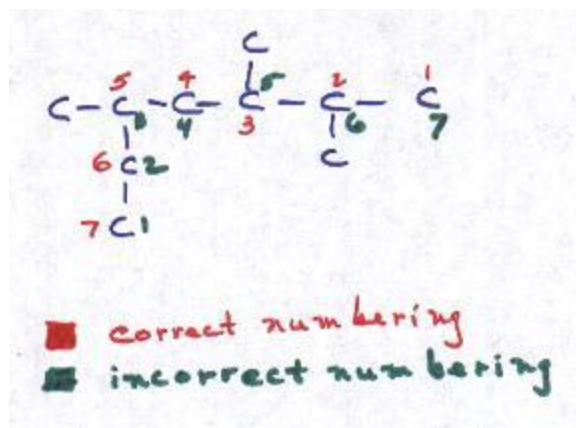 C
5 4 5 2 1
C-C-C-C-C-C
3 4 3 6 7
6 C 2 C
7 C 1
correct numbering
incorrect numbering